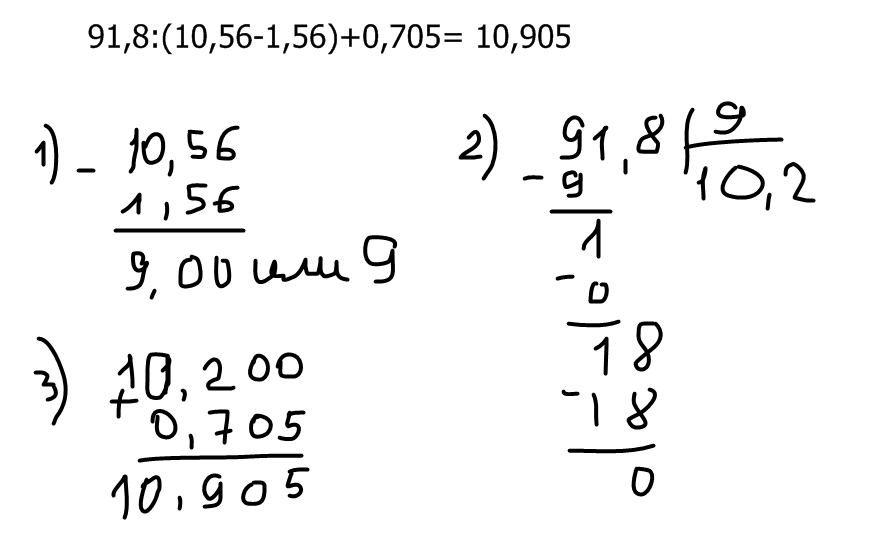 91,8:(10,56-1,56)+0,705= 10,905
1) - 10,56
1,56
9,00 или 9
2) - 91,8 | 9
9
10,2
1
- 0
18
- 18
0
3) 10,200
+ 0,705
10,905